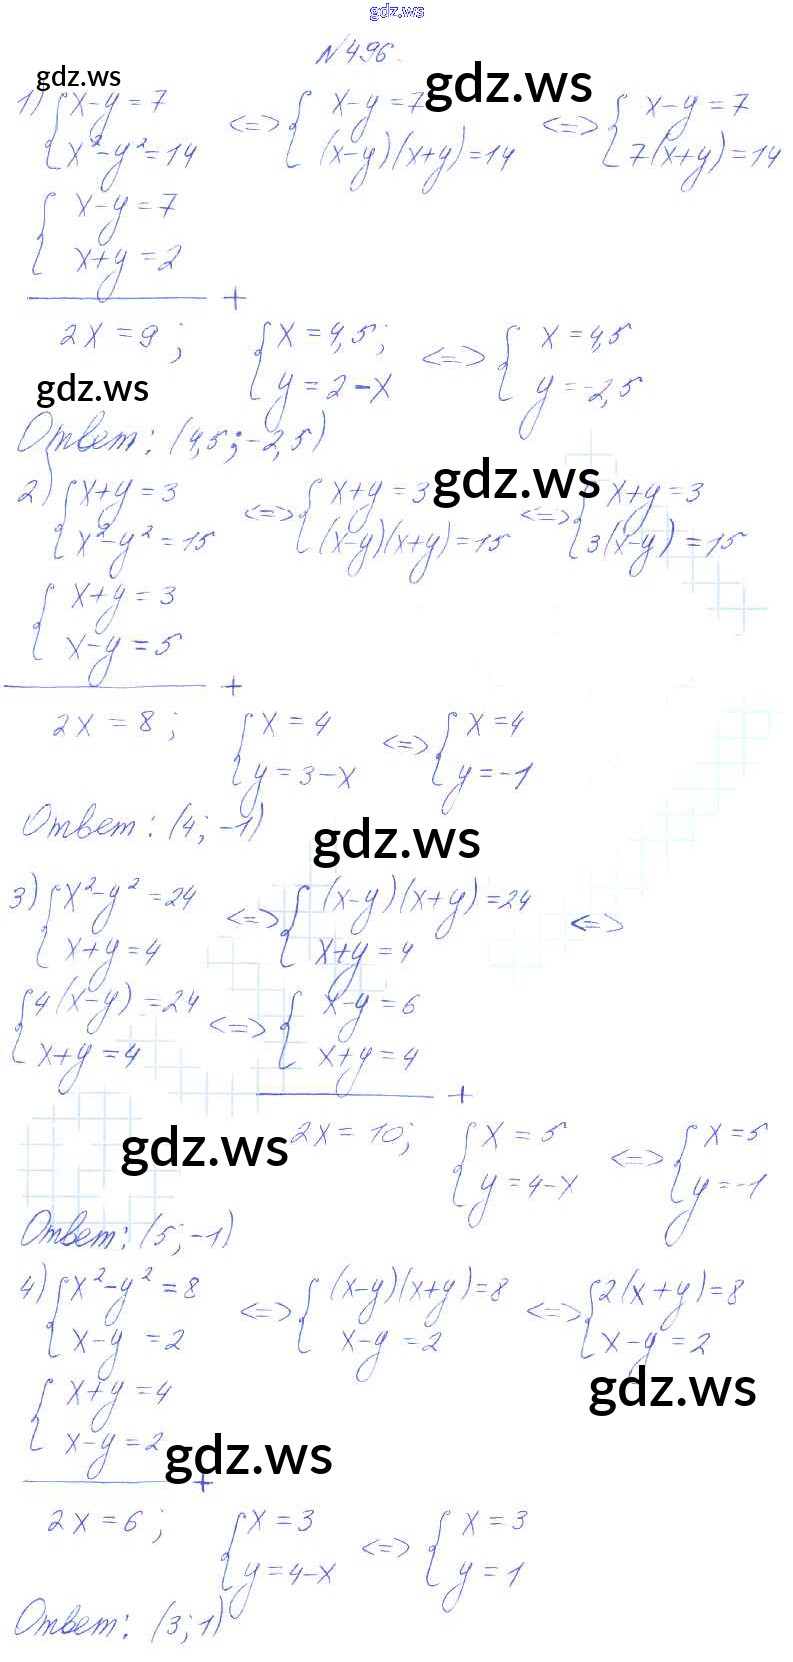 gdz.ws
N496.
gdz.ws gdz.ws
1) { x-y=7 <=> { x-y=7 <=> { x-y=7
x²-y²=14 (x-y)(x+y)=14 7(x+y)=14
{ x-y=7
x+y=2
+
2x=9; { x=4,5; <=> { x=4,5
y=2-x y=-2,5
gdz.ws
Ответ: (4,5; -2,5)
gdz.ws
2) { x+y=3 <=> { x+y=3 <=> { x+y=3
x²-y²=15 (x-y)(x+y)=15 3(x-y)=15
{ x+y=3
x-y=5
+
2x=8; { x=4 <=> { x=4
y=3-x y=-1
Ответ: (4; -1)
gdz.ws
3) { x²-y²=24 <=> { (x-y)(x+y)=24 <=>
x+y=4 x+y=4
{ 4(x-y)=24 <=> { x-y=6
x+y=4 x+y=4
+
gdz.ws
2x=10; { x=5 <=> { x=5
y=4-x y=-1
Ответ: (5; -1)
4) { x²-y²=8 <=> { (x-y)(x+y)=8 <=> { 2(x+y)=8
x-y=2 x-y=2 x-y=2
gdz.ws
{ x+y=4
x-y=2
gdz.ws
+
2x=6; { x=3 <=> { x=3
y=4-x y=1
Ответ: (3; 1)